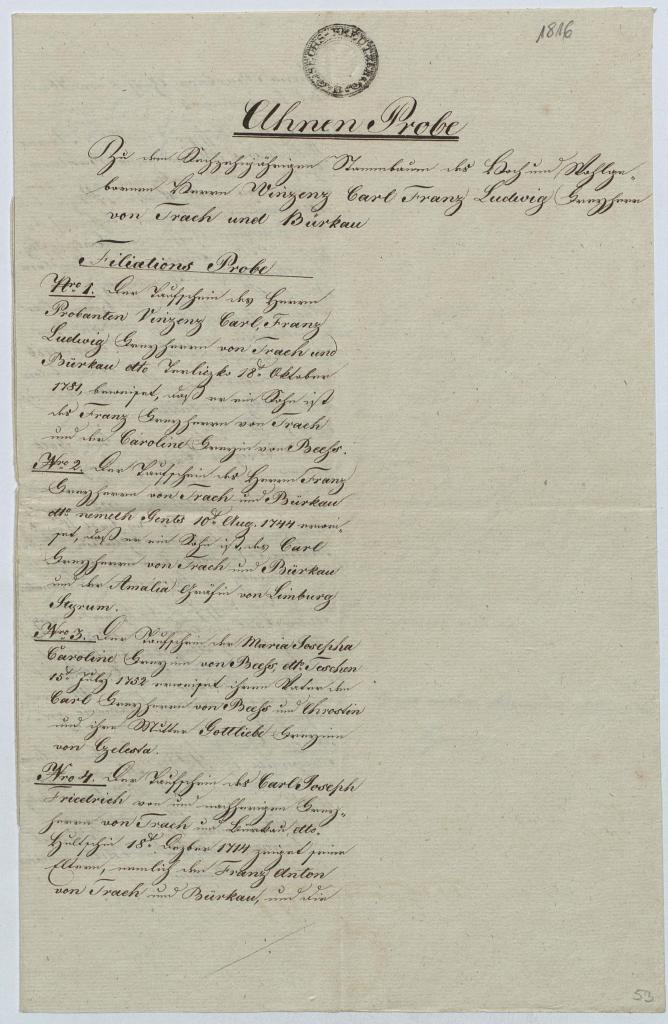 1816
SECHS KREUTZER
Ahnen Probe
Zu dem Sechzehnjährigen Stammbaum des Hoch und Wohlge-
bornen Herrn Vinzenz Carl Franz Ludwig Freyherrn
von Trach und Bürkau
Filiations Probe
Nro 1. Der Taufschein des Herrn
Probanten Vinzenz Carl, Franz
Ludwig Freyherrn von Trach und
Bürkau dto 18t Oktober
1781, beweiset, daß er ein Sohn ist
des Franz Freyherrn von Trach
und der Caroline Freyin von Beess.
Nro 2. Der Taufschein des Herrn Franz
Freyherrn von Trach und Bürkau
dto nemeth Gents 10t Aug. 1744 erwei-
set, daß er ein Sohn ist, des Carl
Freyherrn von Trach und Bürkau
und der Amalia Gräfin von Limburg
Styrum.
Nro 3. Der Taufschein der Maria Josepha
Caroline Freyin von Beess dto Teschen
15t July 1752 erweiset ihren Vater den
Carl Freyherrn von Beess und Chrostin
und ihre Mutter Gottliebe Freyinn
von Czelesta.
Nro 4. Der Taufschein des Carl Joseph
Friedrich von und nachherigen Frey-
herrn von Trach und Bürkau, dto.
Hultschin 18t Dezber 1714 zeiget seine
Eltern, nemlich den Franz Anton
von Trach und Bürkau, und die
53